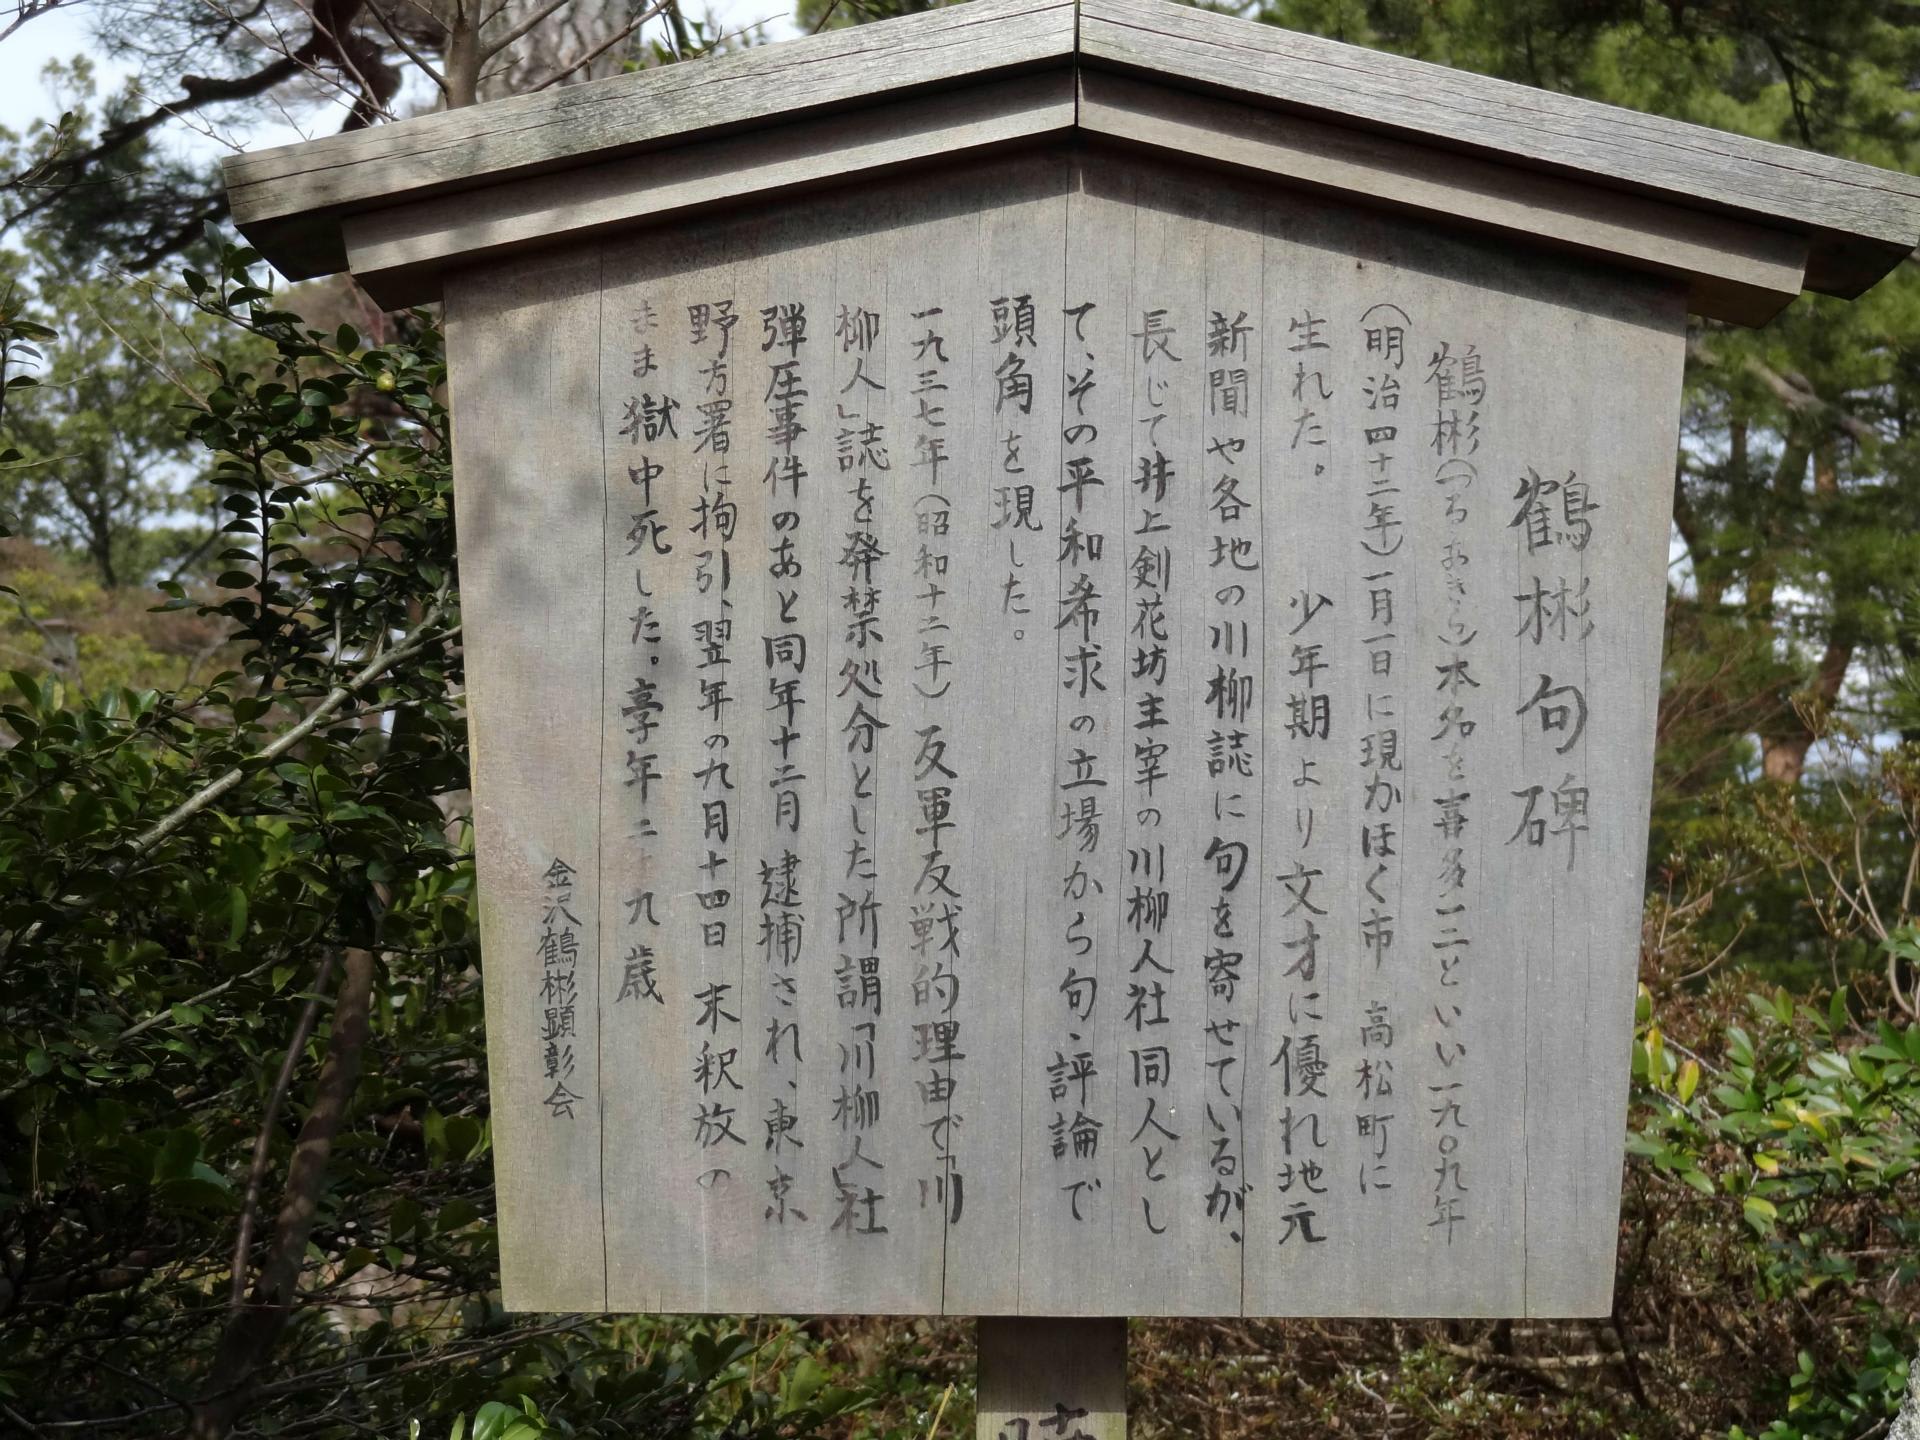 鶴彬句碑
鶴彬（つるあきら）本名を喜多一二といい一九〇九年
（明治四十二年）一月一日に現かほく市　高松町に
生れた。　少年期より文才に優れ地元
新聞や各地の川柳誌に句を寄せているが、
長じて井上剣花坊主宰の川柳人社同人とし
て、その平和希求の立場から句、評論で
頭角を現した。
一九三七年（昭和十二年）反軍反戦的理由で「川
柳人」誌を発禁処分とした所謂「川柳人」社
弾圧事件のあと同年十二月逮捕され、東京
野方署に拘引、翌年の九月十四日　末釈放の
まま獄中死した。享年二十九歳
金沢鶴彬顕彰会